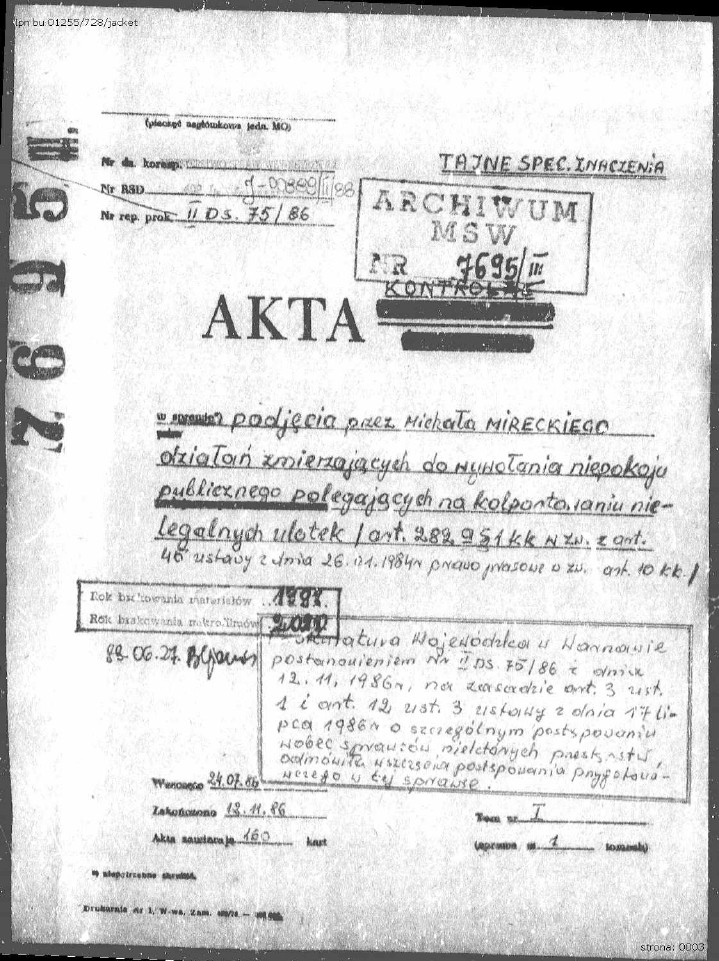 ipn bu 01255/728/jacket
(pieczęć nagłówkowa jedn. MO)
Nr dz. koresp.
Nr RSD J-00889/II/86
Nr rep. prok. II DS. 75/86
TAJNE SPEC. ZNACZENIA
ARCHIWUM
MSW
NR 7695/III
KONTROLNE
7695 III.
AKTA
w sprawie podjęcia przez Michała MIRECKIEGO
działań zmierzających do wywołania niepokoju
publicznego polegających na kolportowaniu nie-
legalnych ulotek / art. 282a § 1 kk w zw. z art.
46 ustawy z dnia 26.01.1984r prawo prasowe w zw. art. 10 kk /
Rok brakowania materiałów
Rok brakowania mikrofilmów
88.06.27.
Prokuratura Wojewódzka w Warszawie
postanowieniem Nr II DS. 75/86 z dnia
12.11.1986r, na zasadzie art. 3 ust.
1 i art. 12 ust. 3 ustawy z dnia 17 li-
pca 1986r o szczególnym postępowaniu
wobec sprawców niektórych przestępstw,
odmówiła wszczęcia postępowania przygotowa-
wczego w tej sprawie.
Wszczęto 24.07.86
Zakończono 12.11.86
Akta zawierają 160 kart
Tom nr I
(sprawa ma 1 tomów)
*) niepotrzebne skreślić.
Drukarnia nr 1, W-wa, Zam.
strona: 0003